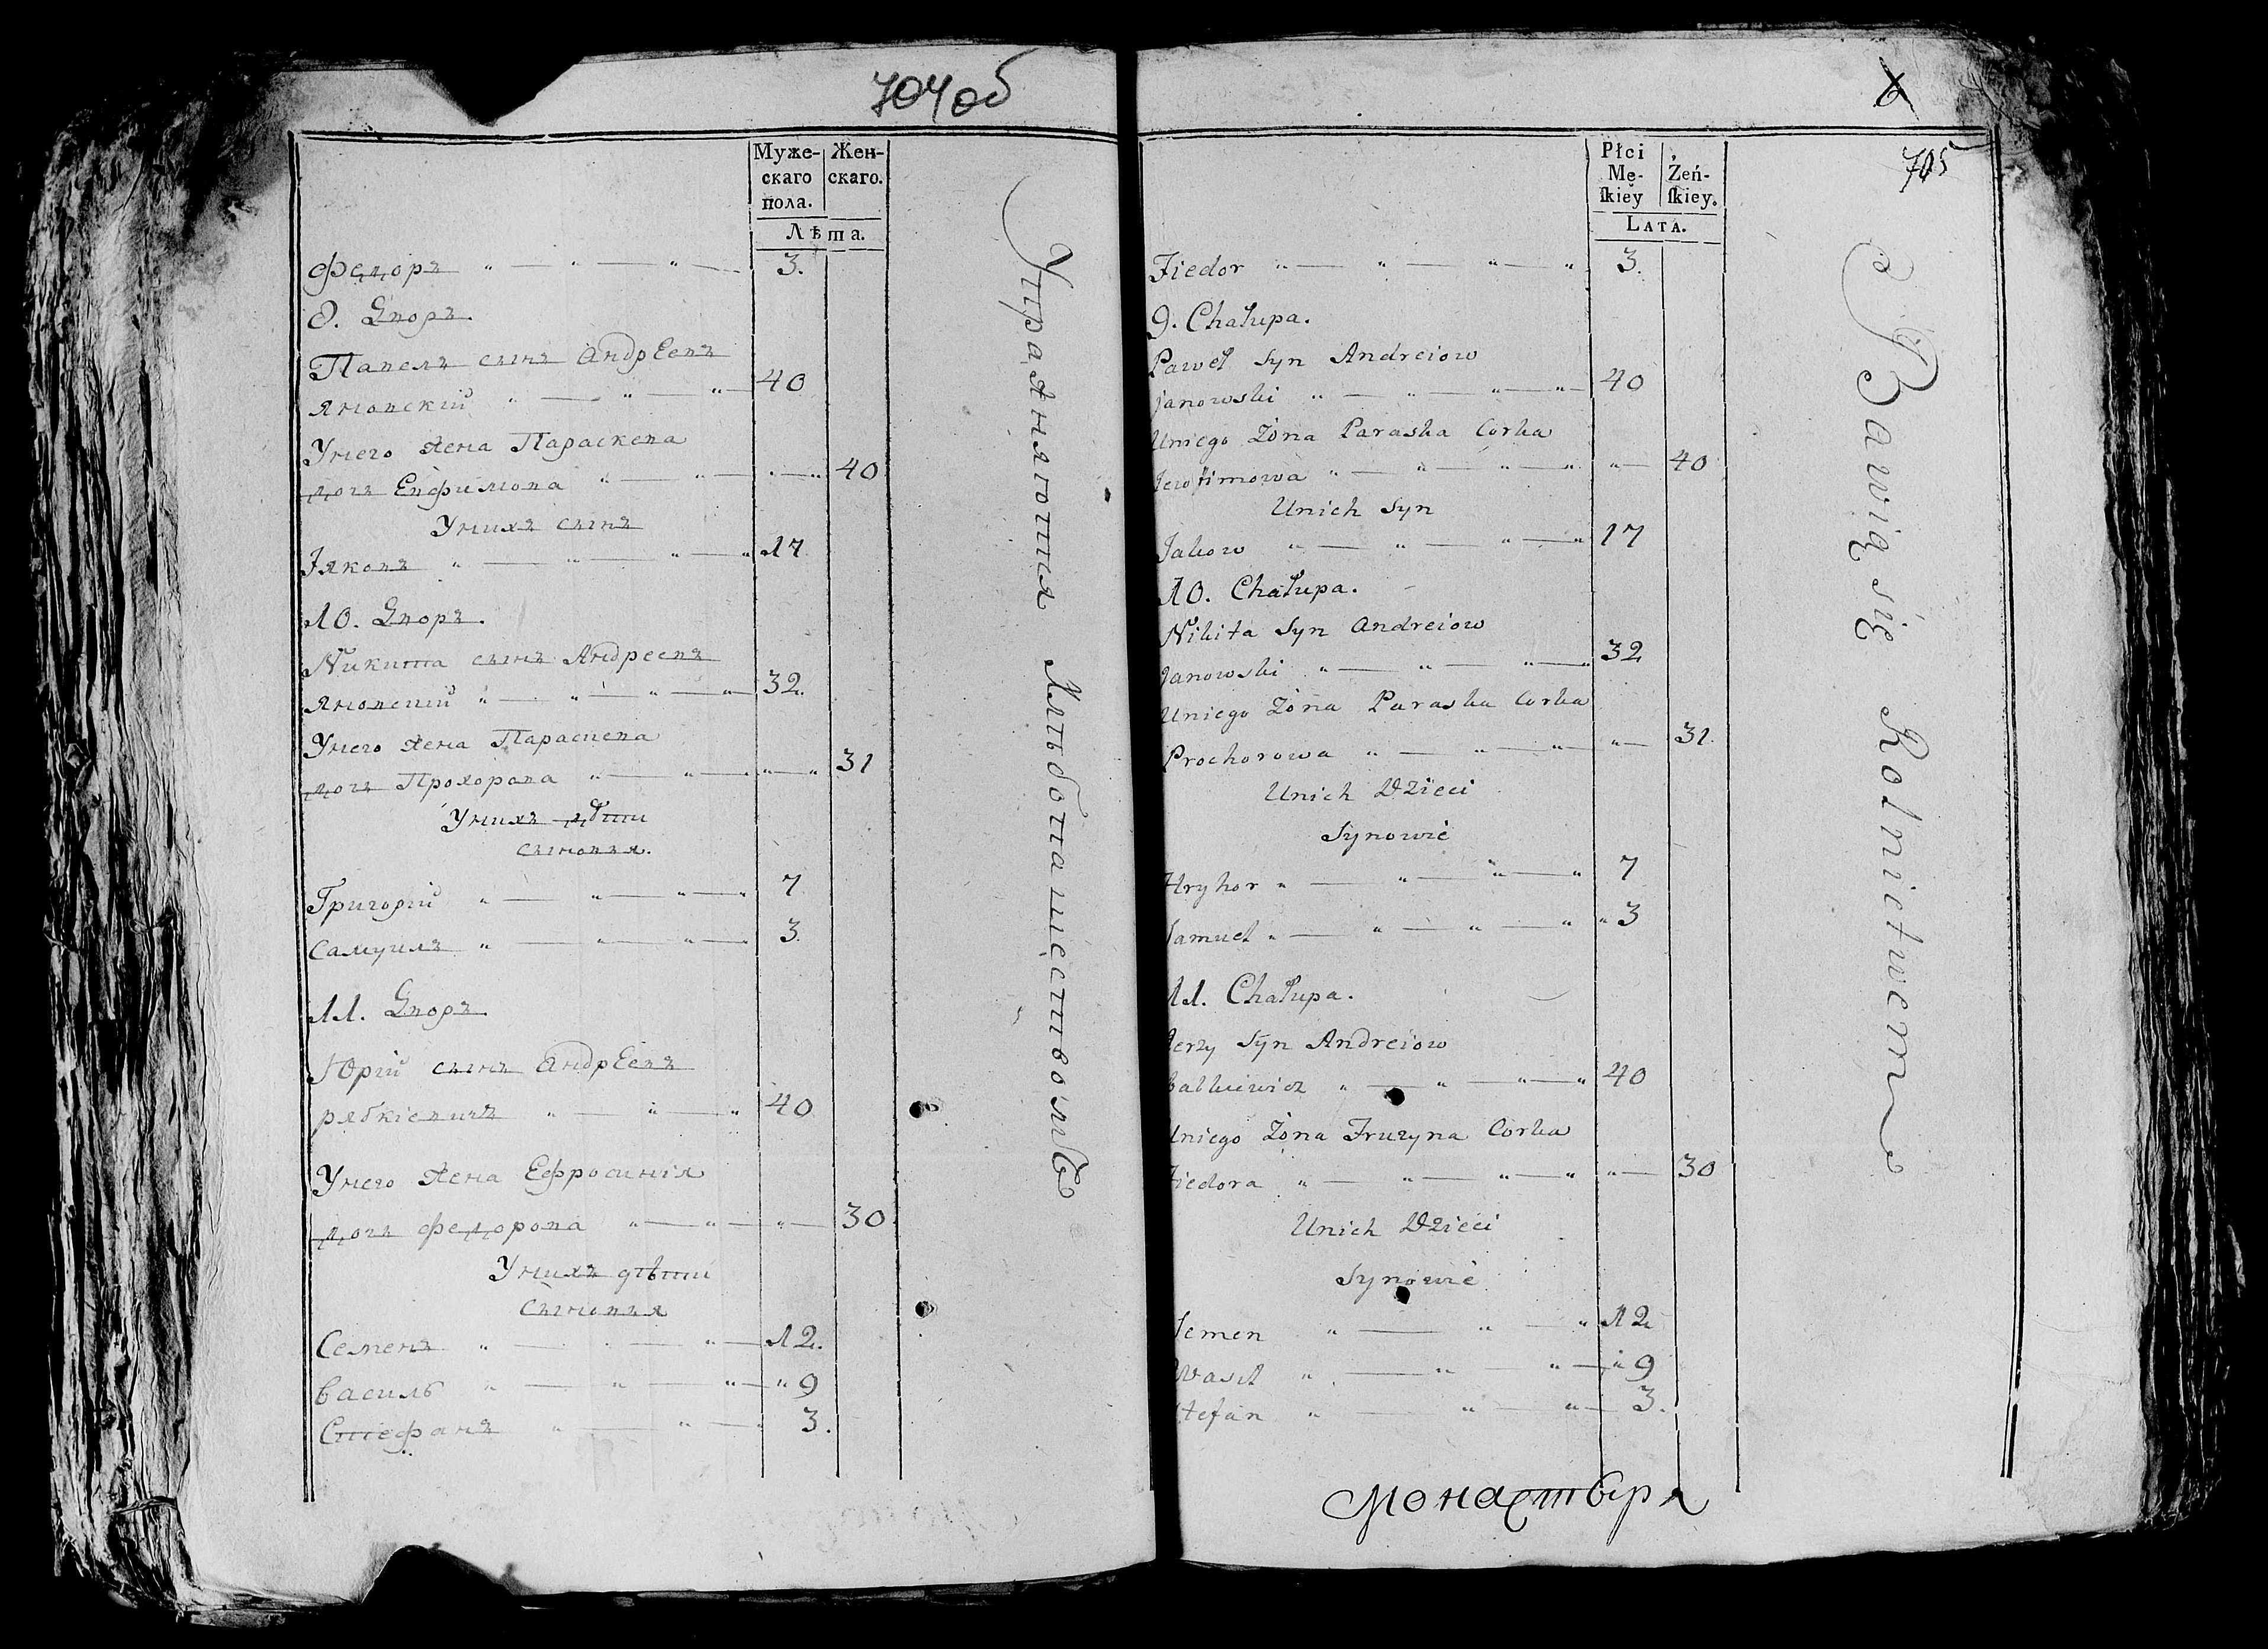 704 об
Муже-
скаго
пола.
Жен-
скаго.
Лѣта.
Федоръ " — " — " — 3.
9. Дворъ.
Павелъ сынъ Андреевъ
Яновский " — " — " — 40
Унего жена Параскева
дочь Евфимова " — " — " — " 40
Унихъ сынъ
Іяковъ " — " — " — " 17
10. Дворъ.
Никита сынъ Андреевъ
Яновский " — " — " — " — 32.
Унего жена Параскева
дочь Прохорава " — " — " — " 31
Унихъ дѣти
сыновья.
Григорій " — " — " — " 7
Самуилъ " — " — " — " 3.
11. Дворъ
Юрій сынъ Андреевъ
рябкіевичъ " — " — " 40
Унего жена Ефросинія
дочь федорова " — " — " — 30
Унихъ дѣти
Сыновья
Семенъ " — " — 12.
василь " — " — " — " 9
Стефанъ " — " — 3.
Упражняются хлѣбопашествомъ
705
Płci
Mę-
skiey
Żeń-
skiey.
LATA.
Fiedor " — " — " — " 3.
9. Chałupa.
Paweł Syn Andreiow
Janowski " — " — " — " — 40
Uniego Zona Paraska Corka
Jewfimowa " — " — " — " " — 40
Unich Syn
Jakow " — " — " — " 17
10. Chałupa.
Nikita Syn Andreiow
Janowski " — " — " — " 32
Uniego Zona Paraska Corka
Prochorowa " — " — " — " — 31
Unich Dzieci
Synowie
Hryhor " — " — " — " 7
Samuel " — " — " — " " 3
11. Chałupa.
Jerzy Syn Andreiow
" — " — " — " 40
Uniego Zona Fruzyna Corka
Fiedora " — " — " — " " — 30
Unich Dzieci
Synowie
Semen " — " — " 12
Wasil " — " — " — " 9
Stefan " — " — " — 3.
Bawią się Rolnictwem
Монастыря